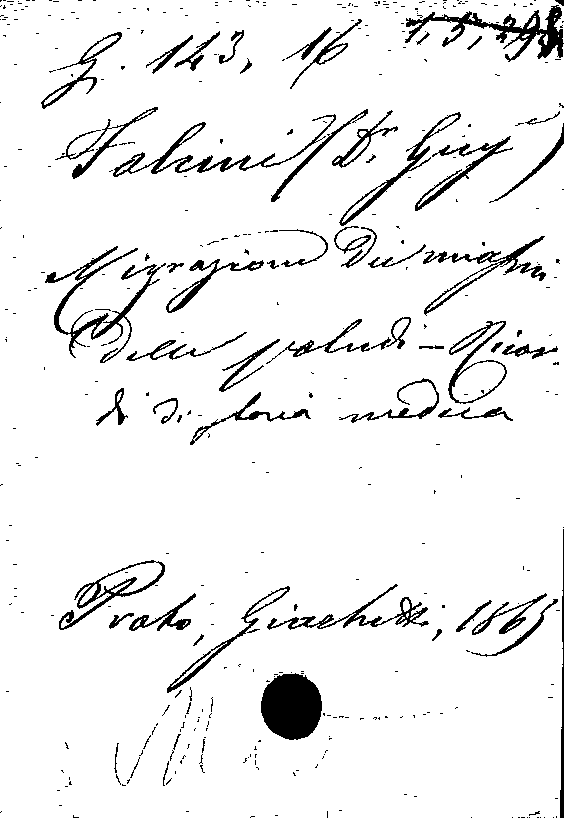 G. 143, 16 1, 5, 298
Falcini (Dr. Gius.e)
Migrazione dei miasmi
delle paludi - Ricor-
di di storia medica
Prato, Giachetti, 1865